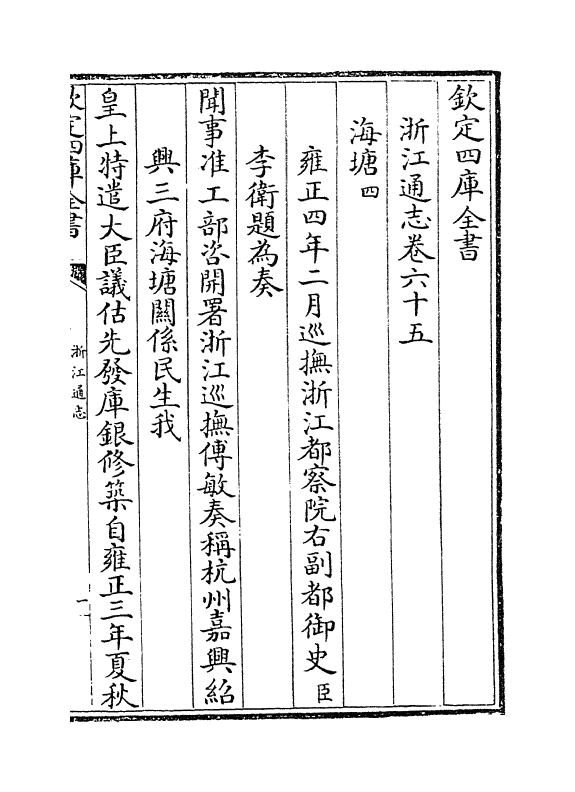 欽定四庫全書
浙江通志卷六十五
海塘四
雍正四年二月巡撫浙江都察院右副都御史臣
李衛題為奏
聞事准工部咨開署浙江巡撫傅敏奏稱杭州嘉興紹
興三府海塘關係民生我
皇上特遣大臣議估先發庫銀修築自雍正三年夏秋
欽定四庫全書
浙江通志
一